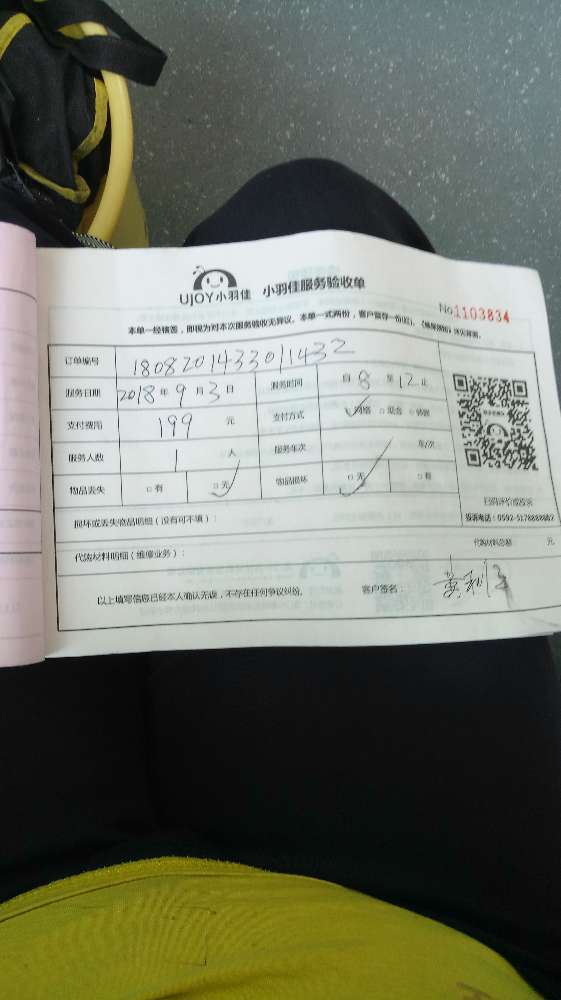 UJOY小羽佳 小羽佳服务验收单
No.1103834
本单一经签署，即视为对本次服务验收无异议。本单一式两份，客户留存一份(红)。
订单编号 1808201433011432
服务日期 2018年9月3日 服务时间 自8至12止
支付费用 199 元 支付方式 网络 □现金 □转账
服务人数 1 人 服务车次 车/次
物品丢失 □有 □无 物品损坏 □无 □有
扫码评价或投诉
损坏或丢失物品明细（没有可不填）：
代购材料明细（维修业务）： 代购材料总额 元
以上填写信息已经本人确认无误，不存在任何争议纠纷。 客户签名：